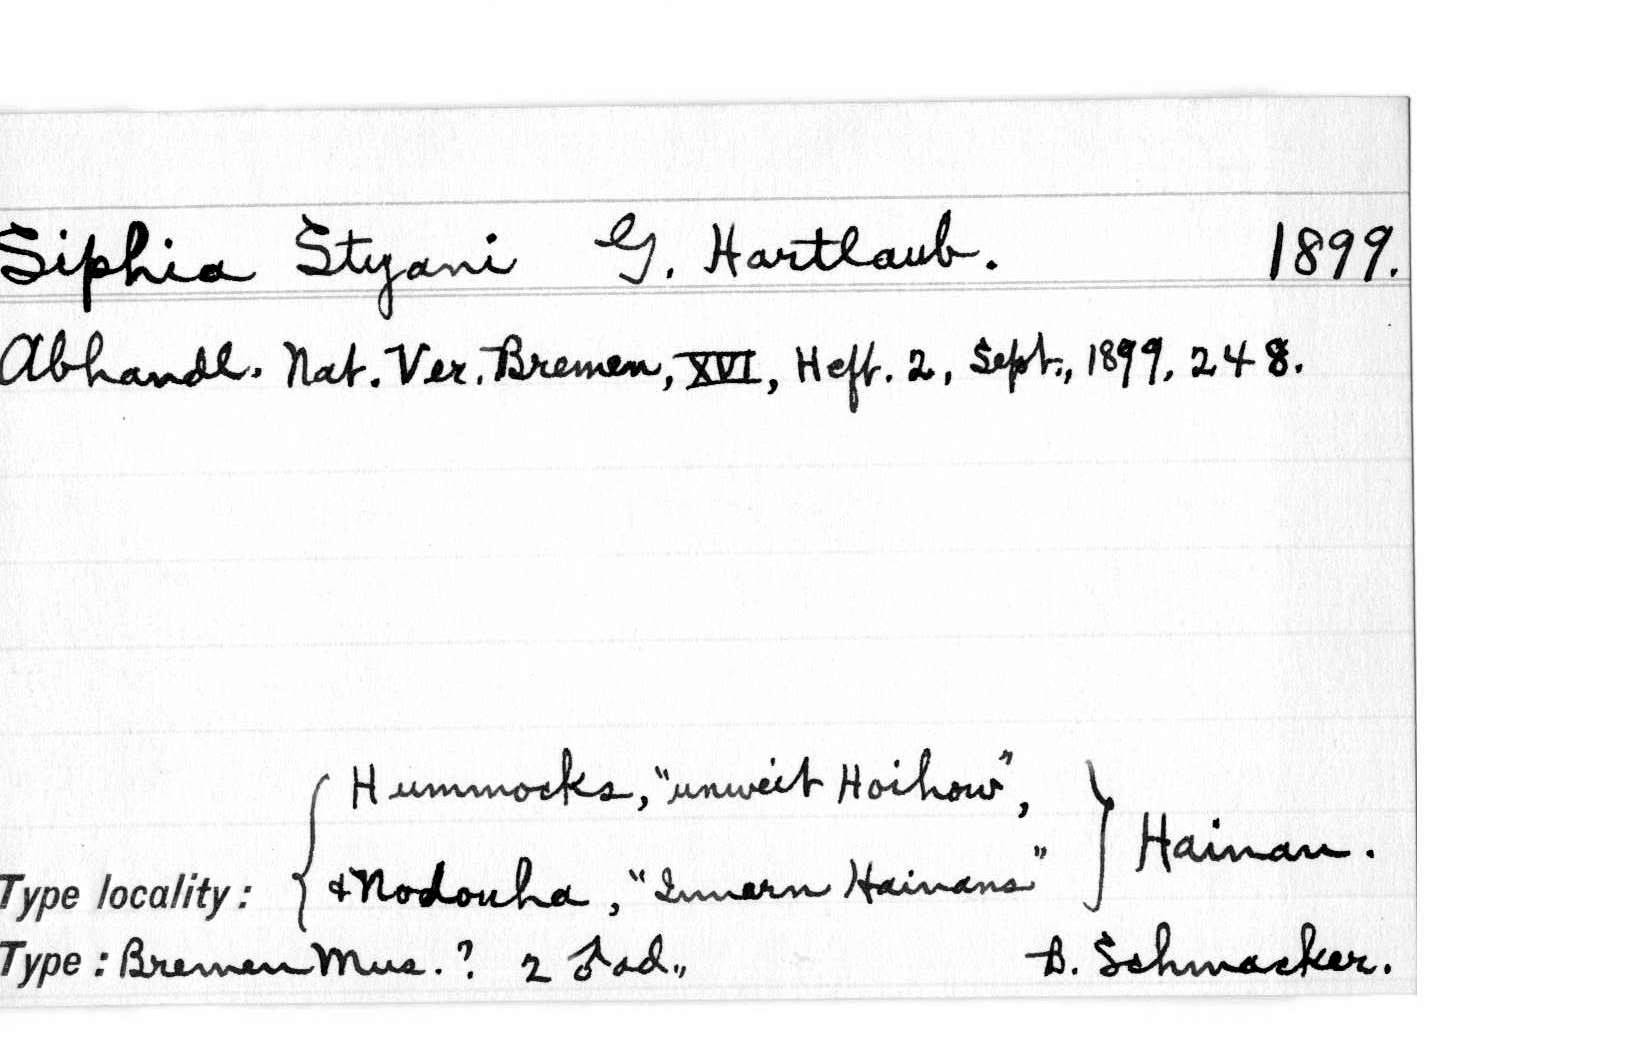 Siphia Styani G. Hartlaub. 1899.
Abhandl. Nat. Ver. Bremen, XVI, Heft. 2, Sept., 1899, 248.
Hummocks, "unweit Hoihow",
Type locality: & Nodouha, "Innern Hainans" Hainan.
Type: Bremen Mus. ? 2 ♂ ad., B. Schmacker.